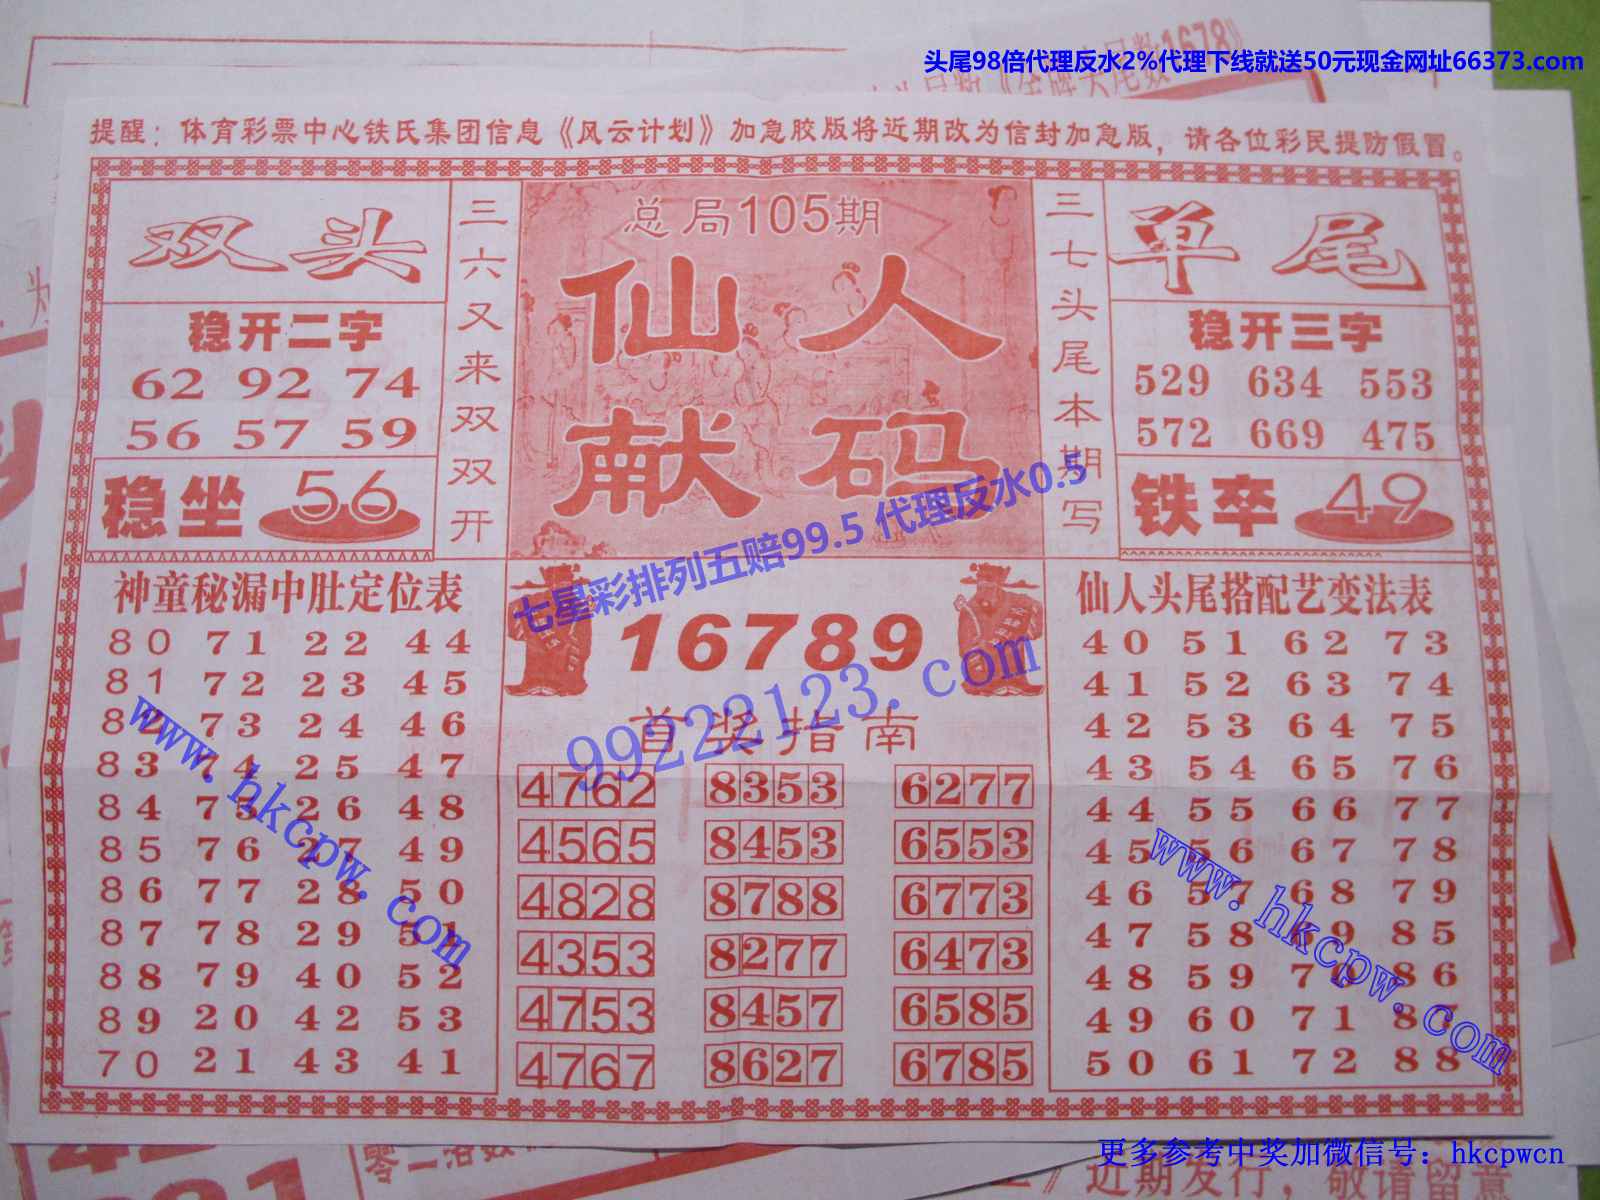 头尾98倍代理反水2%代理下线就送50元现金网址66373.com
提醒：体育彩票中心铁氏集团信息《风云计划》加急胶版将近期改为信封加急版，请各位彩民提防假冒。
双头
稳开二字
62 92 74
56 57 59
稳坐 56
三六又来双双开
总局105期
仙人
献码
三七头尾本期写
单尾
稳开三字
529 634 553
572 669 475
铁卒 49
七星彩排列五赔99.5 代理反水0.5
99222123.com
神童秘漏中肚定位表
80 71 22 44
81 72 23 45
82 73 24 46
83 74 25 47
84 75 26 48
85 76 27 49
86 77 28 50
87 78 29 51
88 79 40 52
89 20 42 53
70 21 43 41
www.hkcpw.com
16789
首奖指南
4762 8353 6277
4565 8453 6553
4828 8788 6773
4353 8277 6473
4753 8457 6585
4767 8627 6785
仙人头尾搭配艺变法表
40 51 62 73
41 52 63 74
42 53 64 75
43 54 65 76
44 55 66 77
45 56 67 78
46 57 68 79
47 58 69 85
48 59 70 86
49 60 71 87
50 61 72 88
www.hkcpw.com
更多参考中奖加微信号：hkcpwcn
近期发行，敬请留意